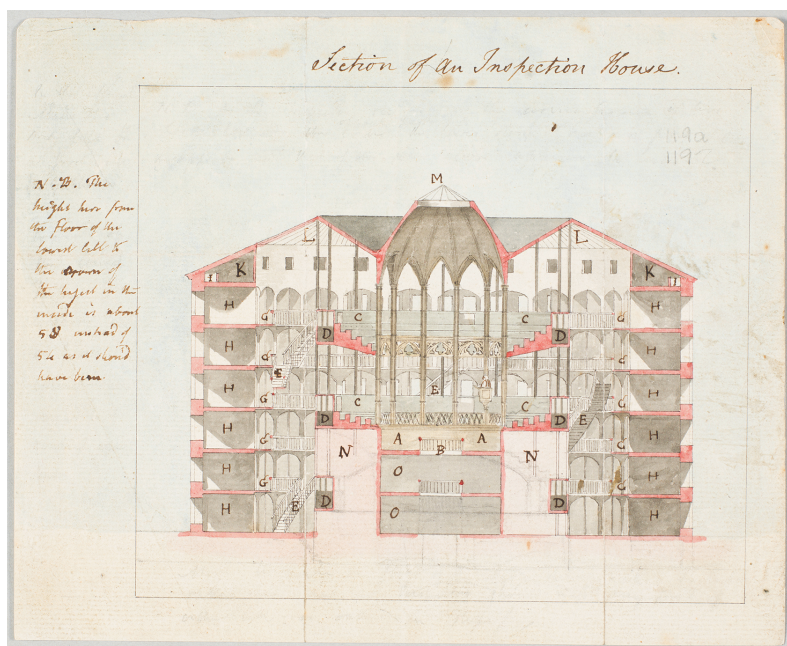 Section of an Inspection House.
119a
1192
N.B. The
height here from
the floor of the
lowest cell to
the crown of
the highest in the
inside is about
58 instead of
54 as it should
have been.
M
L L
K K
H C C H
G G
D D
H H
G G
E
H E H
G C C G
D D E
A B A
H H
G N N G
O
H H
G G
D D
E
H O H